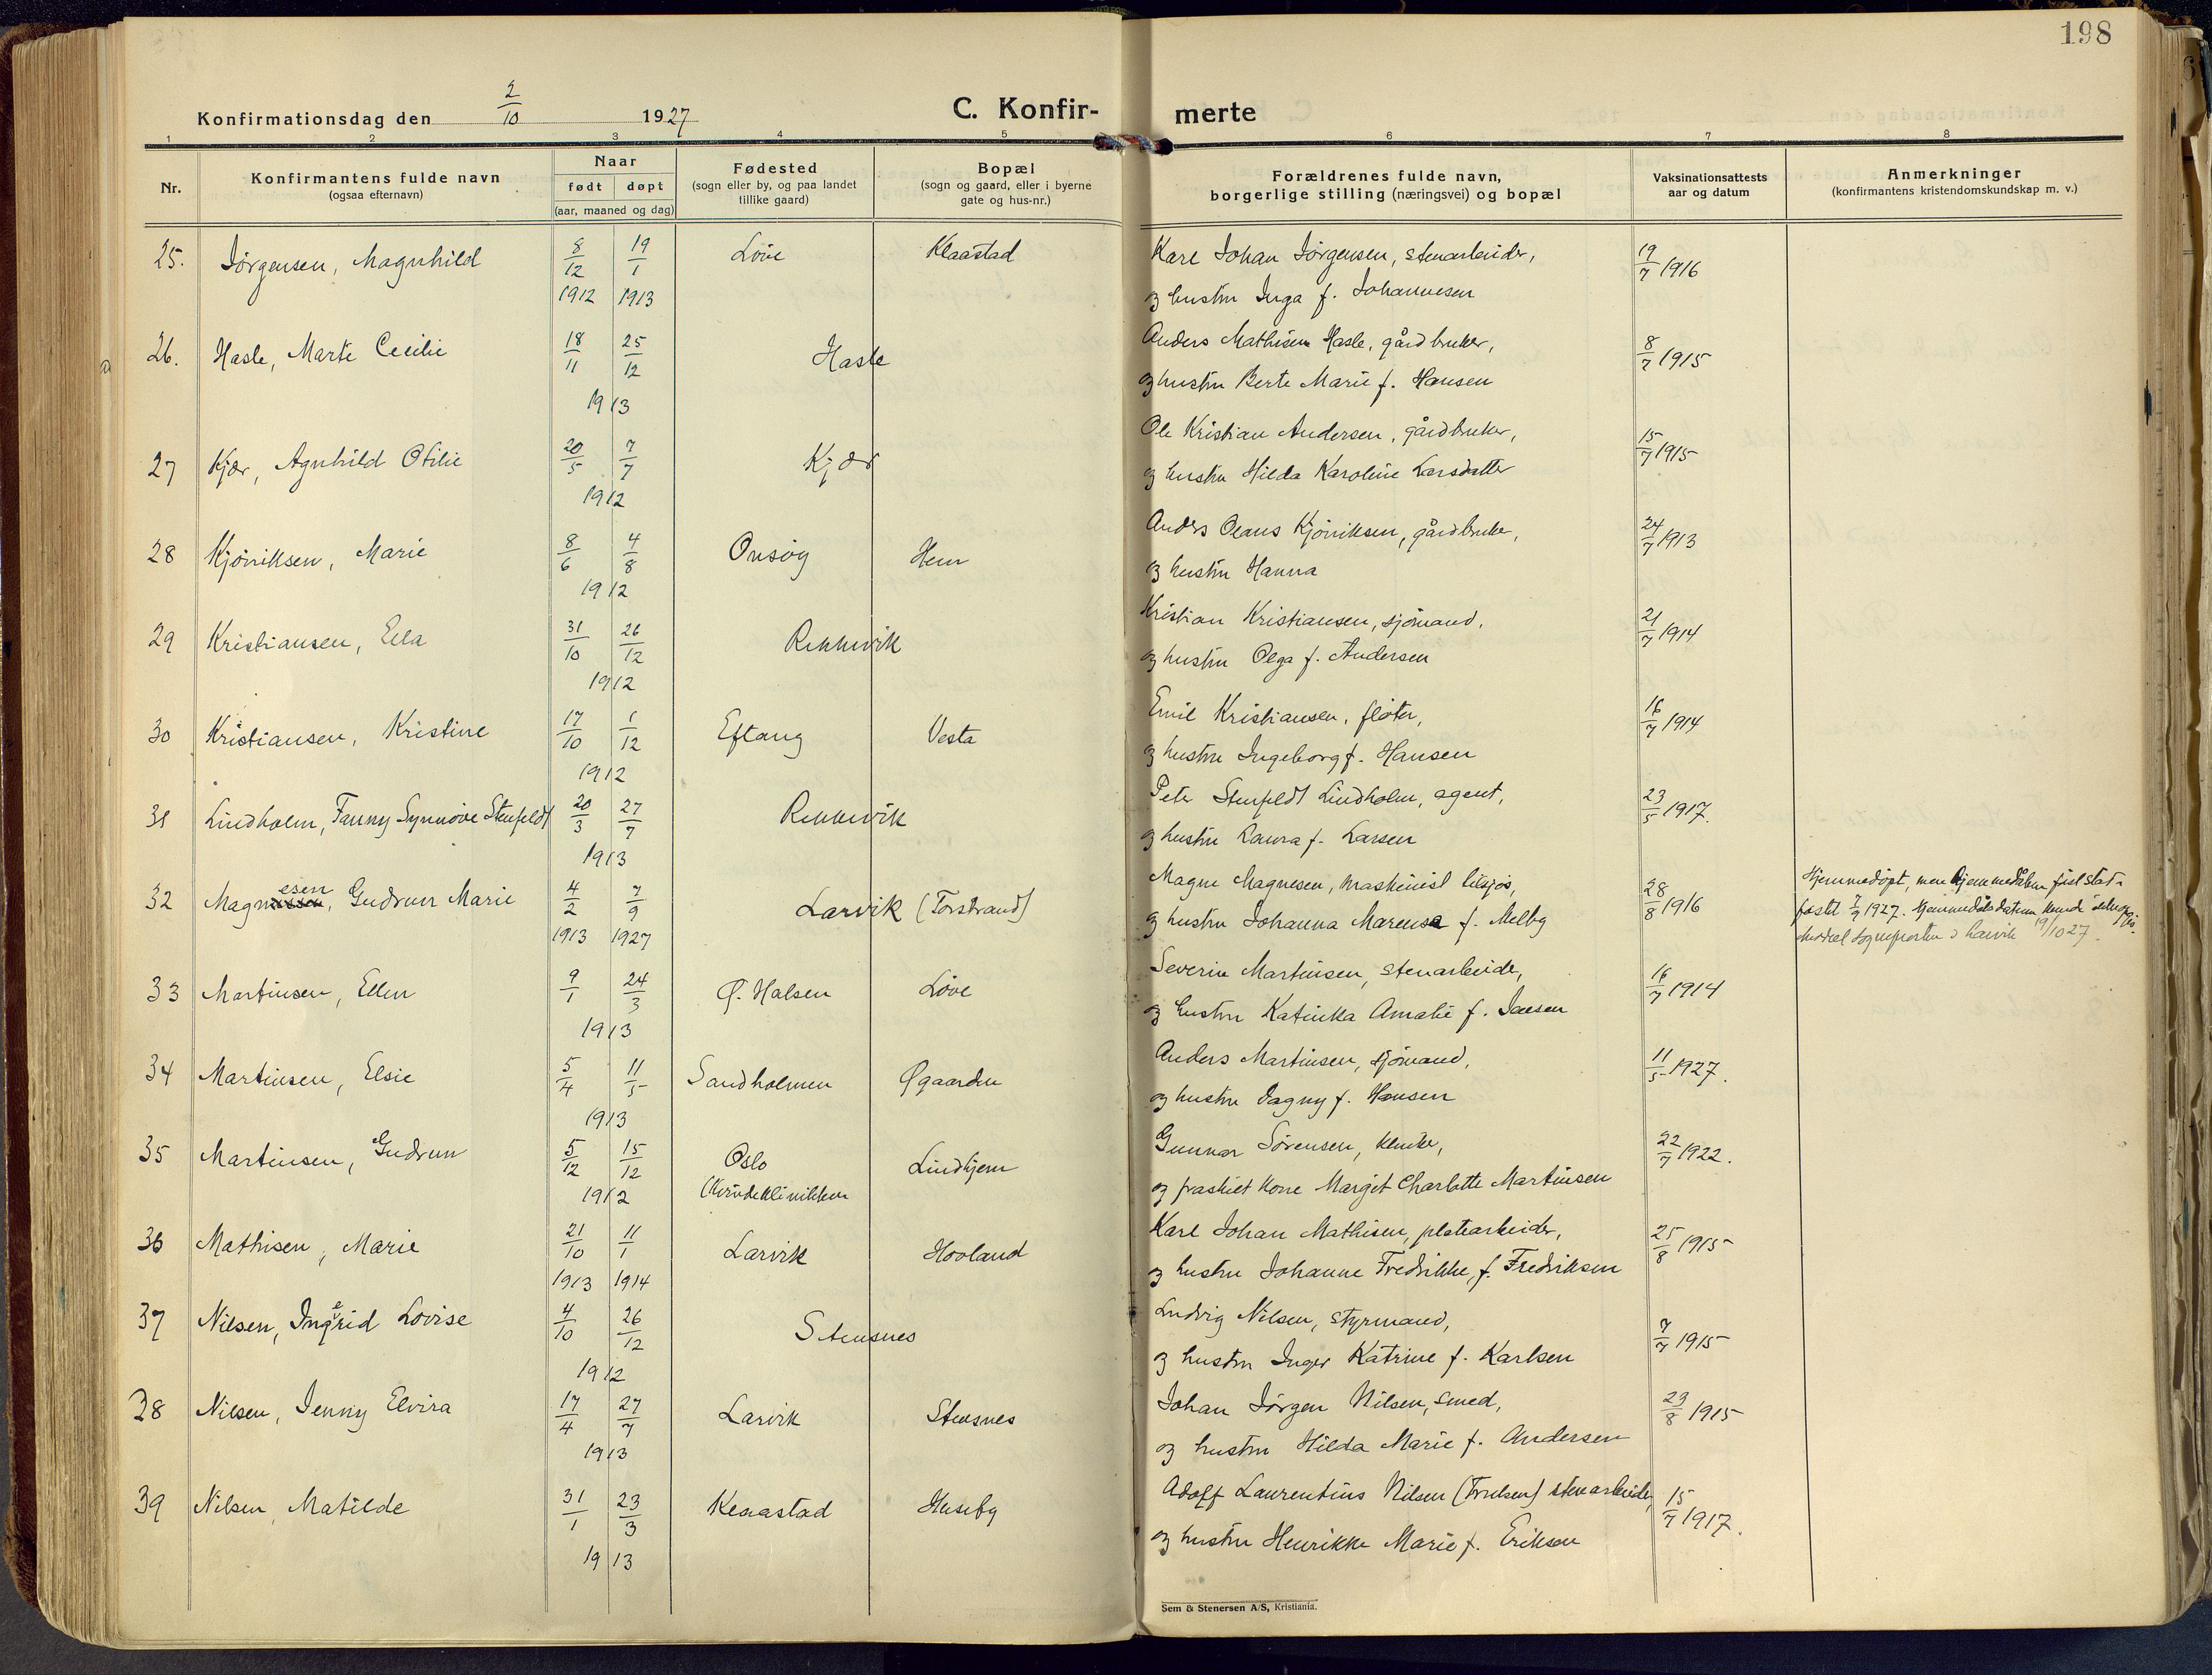 198
Konfirmationsdag den 2/10 1927 C. Konfir- merte
1 2 3 4 5 6 7 8
Nr.
Konfirmantens fulde navn
(ogsaa efternavn)
Naar
født døpt
(aar, maaned og dag)
Fødested
(sogn eller by, og paa landet
tillike gaard)
Bopæl
(sogn og gaard, eller i byerne
gate og hus-nr.)
Forældrenes fulde navn,
borgerlige stilling (næringsvei) og bopæl
Vaksinationsattests
aar og datum
Anmerkninger
(konfirmantens kristendomskundskap m. v.)
25. Jörgensen, Magnhild 8/12 1912 19/1 1913 Löve Klaastad
Karl Johan Jörgensen, stenarbeider,
og hustru Inga f. Johannesen
19/7 1916
26. Hasle, Marte Cecilie 18/11 25/12 1913 Hasle
Anders Mathisen Hasle, gårdbruker,
og hustru Berte Marie f. Hansen
8/7 1915
27 Kjær, Agnhild Otilie 20/5 7/7 1912 Kjær
Ole Kristian Andersen, gårdbruker,
og hustru Hilda Karoline Larsdatter
15/7 1915
28 Kjönniksen, Marie 8/6 4/8 1912 Onsöy Hem
Anders Olaus Kjönniksen, gårdbruker,
og hustru Hanna
24/7 1913
29 Kristiansen, Ella 31/10 26/12 1912 Rekkevik
Kristian Kristiansen, sjömand,
og hustru Olga f. Andersen
21/7 1914
30 Kristiansen, Kristine 17/10 1/12 1912 Eftang Vesta
Emil Kristiansen, fløter,
og hustru Ingeborg f. Hansen
16/7 1914
31 Lindholm, Fanny Synnöve Stenfeldt 20/3 27/7 1913 Rekkevik
Peter Stenfeldt Lindholm, agent,
og hustru Laura f. Larsen
23/5 1917.
32 Magnesen, Gudrun Marie 4/2 1913 7/9 1927 Larvik (Torstrand)
Magne Magnesen, maskinist tilsjøs,
og hustru Johanna Marensa f. Melby
28/8 1916
Hjemmedöpt, men hjemmedåben först stad-
festet 7/9 1927. Hjemmedåbsdatum
meddelt sogneprosten i Larvik 19/10 27.
33 Martinsen, Ellen 9/1 24/3 1913 Ø. Halsen Löve
Severin Martinsen, stenarbeider,
og hustru Katinka Amalie f. Jansen
16/7 1914
34 Martinsen, Elsie 5/4 11/5 1913 Sandholmen Øgaarden
Anders Martinsen, sjömand,
og hustru Dagny f. Hansen
11/5 1927.
35 Martinsen, Gudrun 5/12 15/12 1912 Oslo
(Kvindeklinikken Lindhjem
Gunnar Sörensen, kelner,
og fraskilt kone Margit Charlotte Martinsen
22/7 1922.
36 Mathisen, Marie 21/10 1913 11/1 1914 Larvik Hovland
Karl Johan Mathisen, platearbeider,
og hustru Johanne Fredrikke, f. Fredriksen
25/8 1915
37 Nilsen, Ingerid Lovise 4/10 26/12 1912 Stensnes
Ludvig Nilsen, styrmand,
og hustru Inger Katrine f. Karlsen
7/7 1915
38 Nilsen, Jenny Elvira 17/4 27/7 1913 Larvik Stensnes
Johan Jörgen Nilsen, smed,
og hustru Hilda Marie f. Andersen
23/8 1915
39 Nilsen, Matilde 31/1 23/3 1913 Klaastad Huseby
Adolf Laurentius Nilsen (Trulsen) stenarbeider,
og hustru Henrikke Marie f. Eriksen
15/7 1917.
Sem & Stenersen A/S, Kristiania.